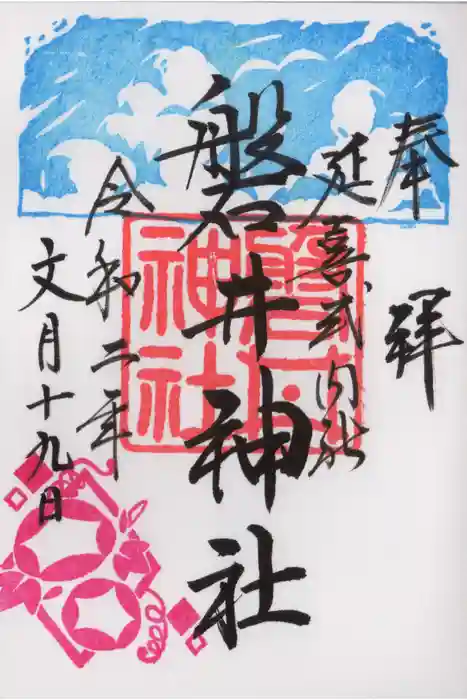 奉拝
延喜式内社
磐井神社
令和二年
文月十九日
磐井神社